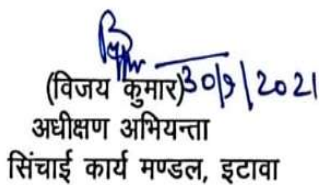 (विजय कुमार) 30/9/2021
अधीक्षण अभियन्ता
सिंचाई कार्य मण्डल, इटावा